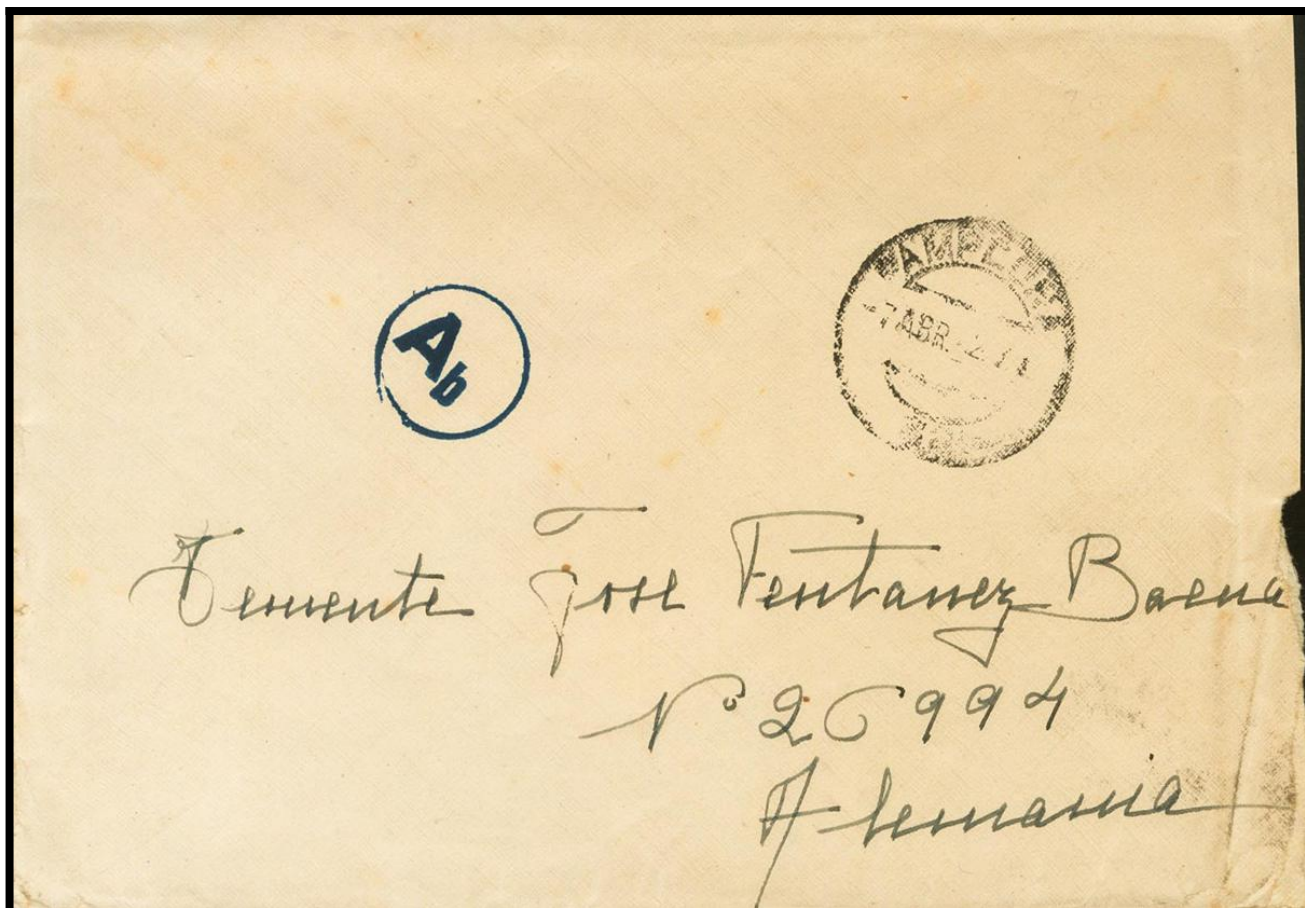 Ab
7 ABR. 42
Teniente Jose Fentanez Baena
Nº 26994
Alemania